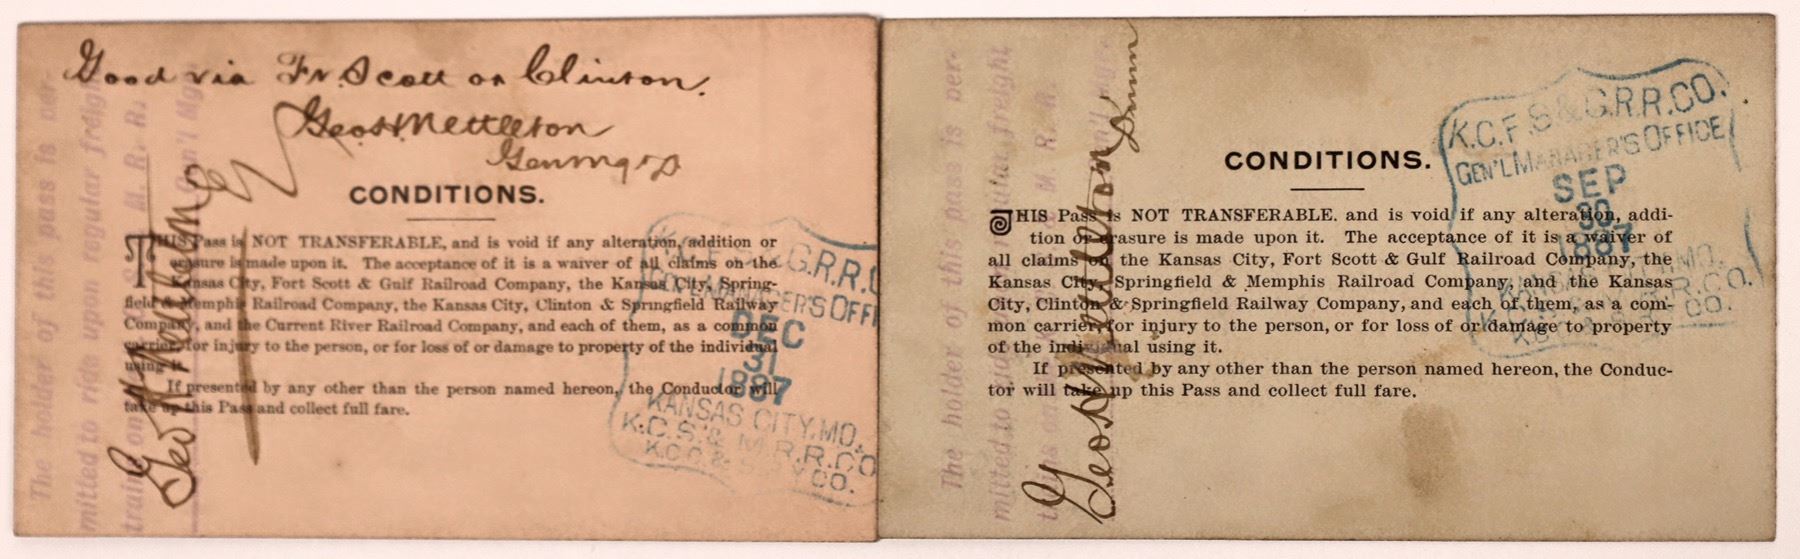 Good via Ft. Scott or Clinton.
Geo. H. Nettleton
Gen Mngr
CONDITIONS.
THIS Pass is NOT TRANSFERABLE, and is void if any alteration, addition or
erasure is made upon it. The acceptance of it is a waiver of all claims on the
Kansas City, Fort Scott & Gulf Railroad Company, the Kansas City, Spring-
field & Memphis Railroad Company, the Kansas City, Clinton & Springfield Railway
Company, and the Current River Railroad Company, and each of them, as a common
carrier, for injury to the person, or for loss of or damage to property of the individual
using it.
If presented by any other than the person named hereon, the Conductor will
take up this Pass and collect full fare.
The holder of this pass is per-
mitted to ride upon regular freight
train on M. R. R.
Gen'l Mgr
Geo H Nettleton
G.R.R.C
MANAGER'S OFFI
DEC
31
1887
KANSAS CITY, MO.
K.C.S. & M.R.R.CO
K.C.C. & S. RY CO.
CONDITIONS.
THIS Pass is NOT TRANSFERABLE. and is void if any alteration, addi-
tion or erasure is made upon it. The acceptance of it is a waiver of
all claims on the Kansas City, Fort Scott & Gulf Railroad Company, the
Kansas City, Springfield & Memphis Railroad Company, and the Kansas
City, Clinton & Springfield Railway Company, and each of them, as a com-
mon carrier, for injury to the person, or for loss of or damage to property
of the individual using it.
If presented by any other than the person named hereon, the Conduc-
tor will take up this Pass and collect full fare.
The holder of this pass is per-
mitted to regular freight
M. R. R.
Gen'l Mgr
Geo H Nettleton
K.C.F.S & G.R.R.CO.
GEN'L MANAGER'S OFFICE
SEP
30
1887
MO.
R.R.CO.
CO.